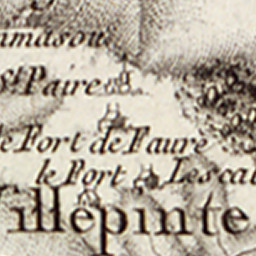 amasou
St. Paire
le Fort de Faure
le Port Lescal
illepinte